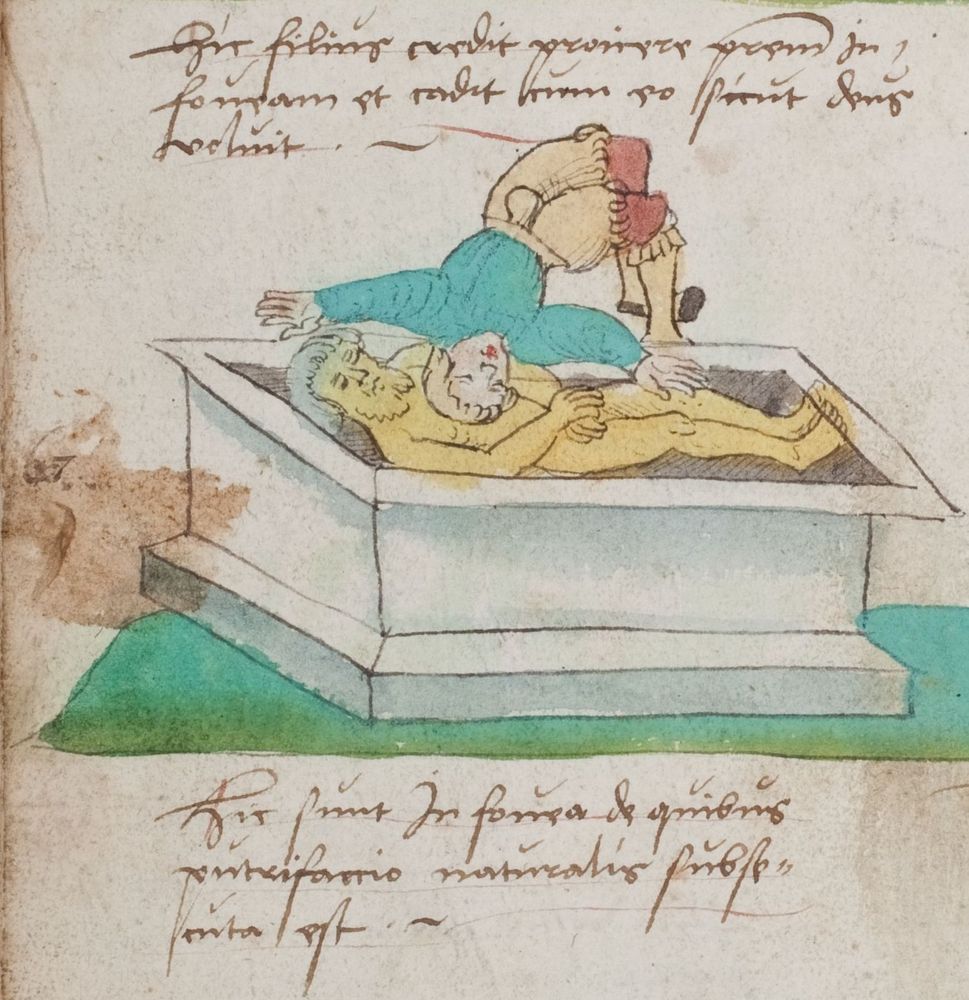 Hic filius credit proicere prem̄ In
foueam et cadit cum eo sicut deus
voluit . ~
Hic sunt In fouea de quibus
putrifaccio naturalis subse=
cuta est . ~